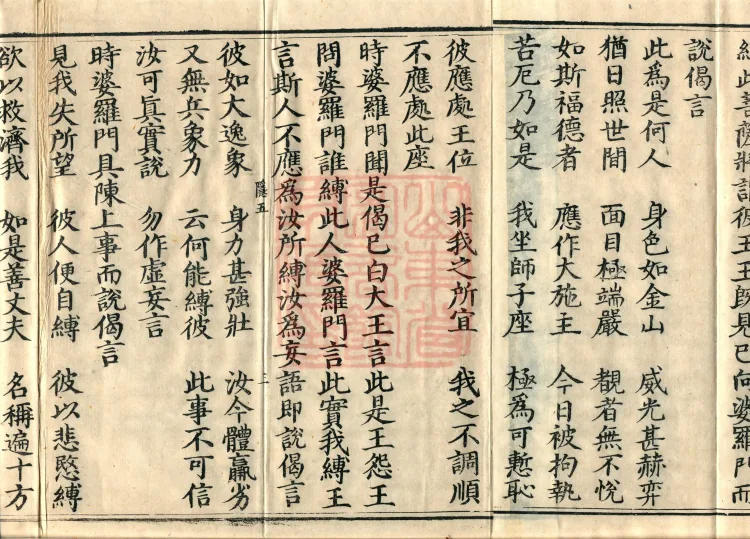 此菩薩將詣彼王王既見已向婆羅門而
說偈言
此為是何人 身色如金山 威光甚赫弈
猶日照世間 面目極端嚴 覩者無不悅
如斯福德者 應作大施主 今日被拘執
苦厄乃如是 我坐師子座 極為可慙恥
彼應處王位 非我之所宜 我之不調順
不應處此座
時婆羅門聞是偈已白大王言此是王怨王
問婆羅門誰縛此人婆羅門言此實我縛王
言斯人不應為汝所縛汝為妄語即說偈言
隱五 三
彼如大逸象 身力甚強壯 汝今體羸劣
又無兵象力 云何能縛彼 此事不可信
汝可真實說 勿作虛妄言
時婆羅門具陳上事而說偈言
見我失所望 彼人便自縛 彼以悲愍縛
欲以救濟我 如是善丈夫 名稱遍十方